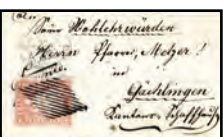 Seine Wohlehrwürden
Herrn Pfarrer, Metzer!
in
Gächlingen
Kantons, Schaffhausen